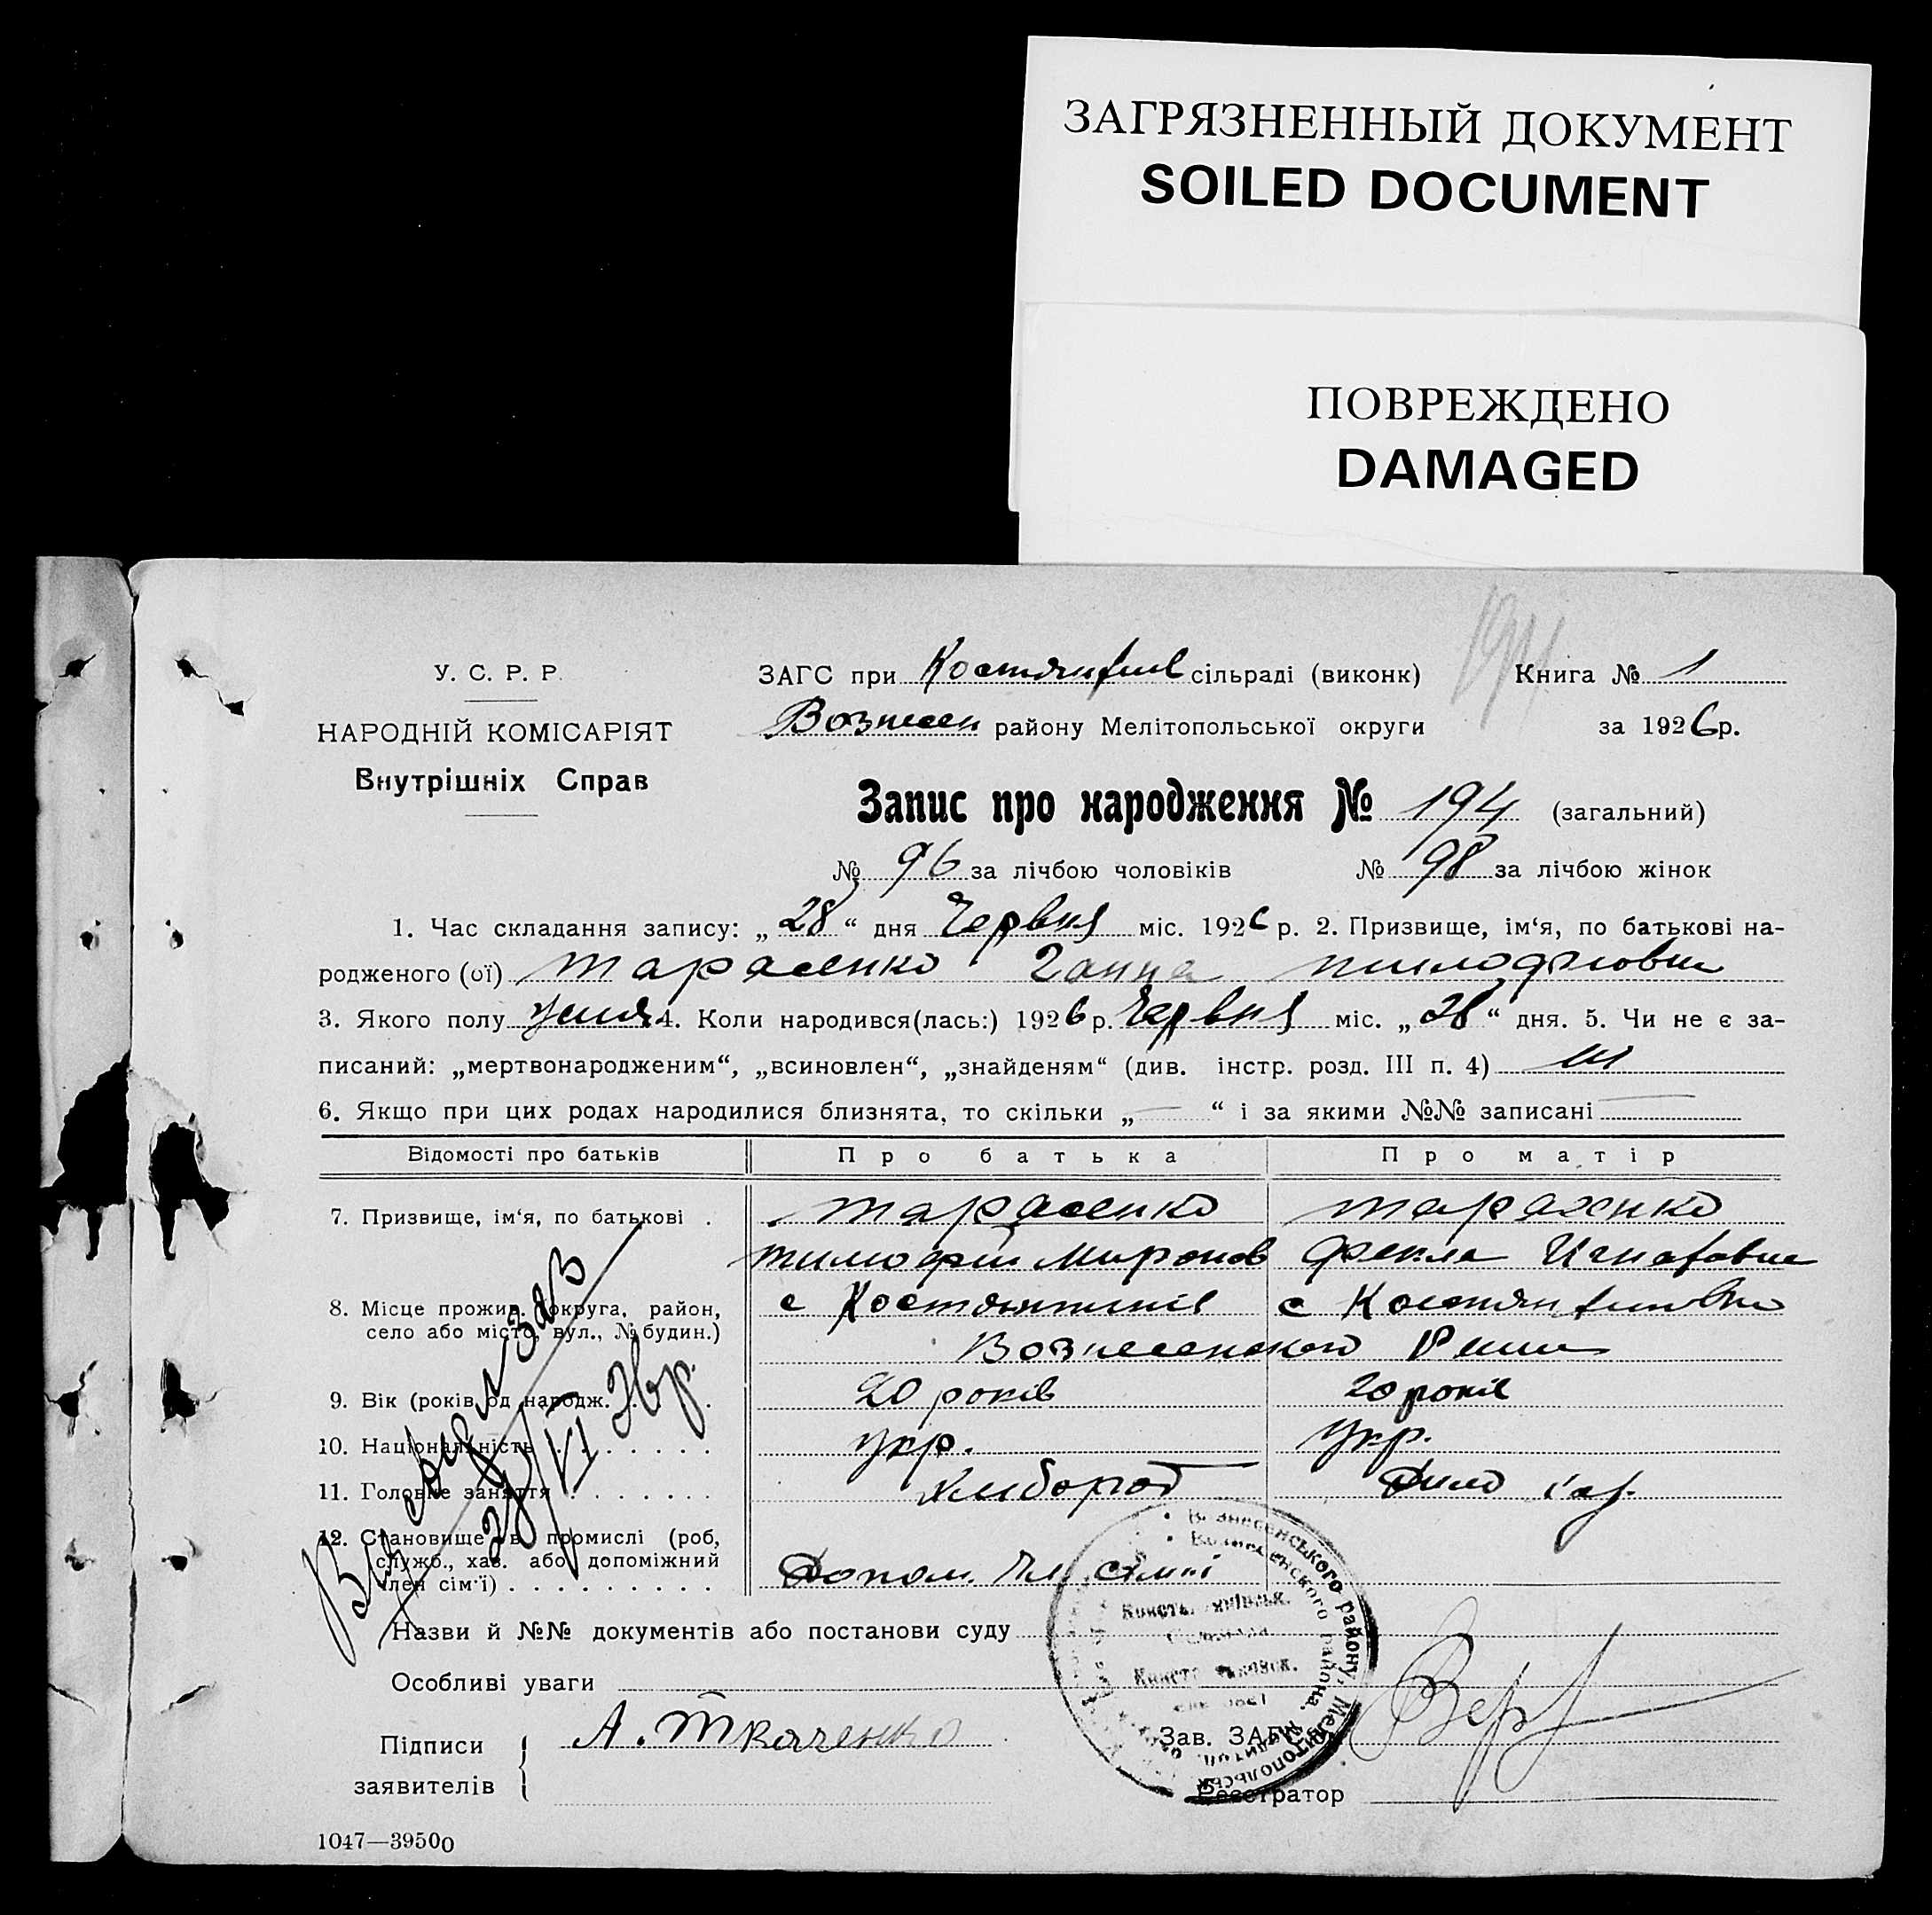 ЗАГРЯЗНЕННЫЙ ДОКУМЕНТ
SOILED DOCUMENT
ПОВРЕЖДЕНО
DAMAGED
194
У. С. Р. Р.
НАРОДНІЙ КОМІСАРІЯТ
Внутрішніх Справ
ЗАГС при сільраді (виконк) Книга № 1
Вознесен району Мелітопольської округи за 1926 р.
Запис про народження № 194 (загальний)
№ 96 за лічбою чоловіків № 98 за лічбою жінок
1. Час складання запису: „28“ дня Червня міс. 1926 р. 2. Призвище, ім‘я, по батькові на-
родженого (ої) Тарасенко Ганна
3. Якого полу 4. Коли народився(лась:) 1926 р. Червня міс. „28“ дня. 5. Чи не є за-
писаний: „мертвонародженим“, „всиновлен“, „знайденям“ (див. інстр. розд. III п. 4)
6. Якщо при цих родах народилися близнята, то скільки „—“ і за якими №№ записані —
Відомості про батьків Про батька Про матір
7. Призвище, ім‘я, по батькові . Тарасенко Тарасенко
Тимофій Миронов Фекла Игнатовна
8. Місце прожив. (округа, район, село або місто, вул., № будин.) с с
Вознесенского
9. Вік (років од народж. . . 20 років 20 років
10. Національність . . . . . . . укр. Укр.
11. Головне заняття . . . . . . . хлібороб
12. Становище в промислі (роб,
служб., хаз. або допоміжний
член сім‘ї) . . . . . . . . . . Допом. Чл. сімї
VI 26 р.
Назви й №№ документів або постанови суду
Особливі уваги
Підписи
заявителів А. Ткаченко
Зав. ЗАГС‘ом
Реєстратор
Вознесенського району, Мелітопольськ
1047—39500